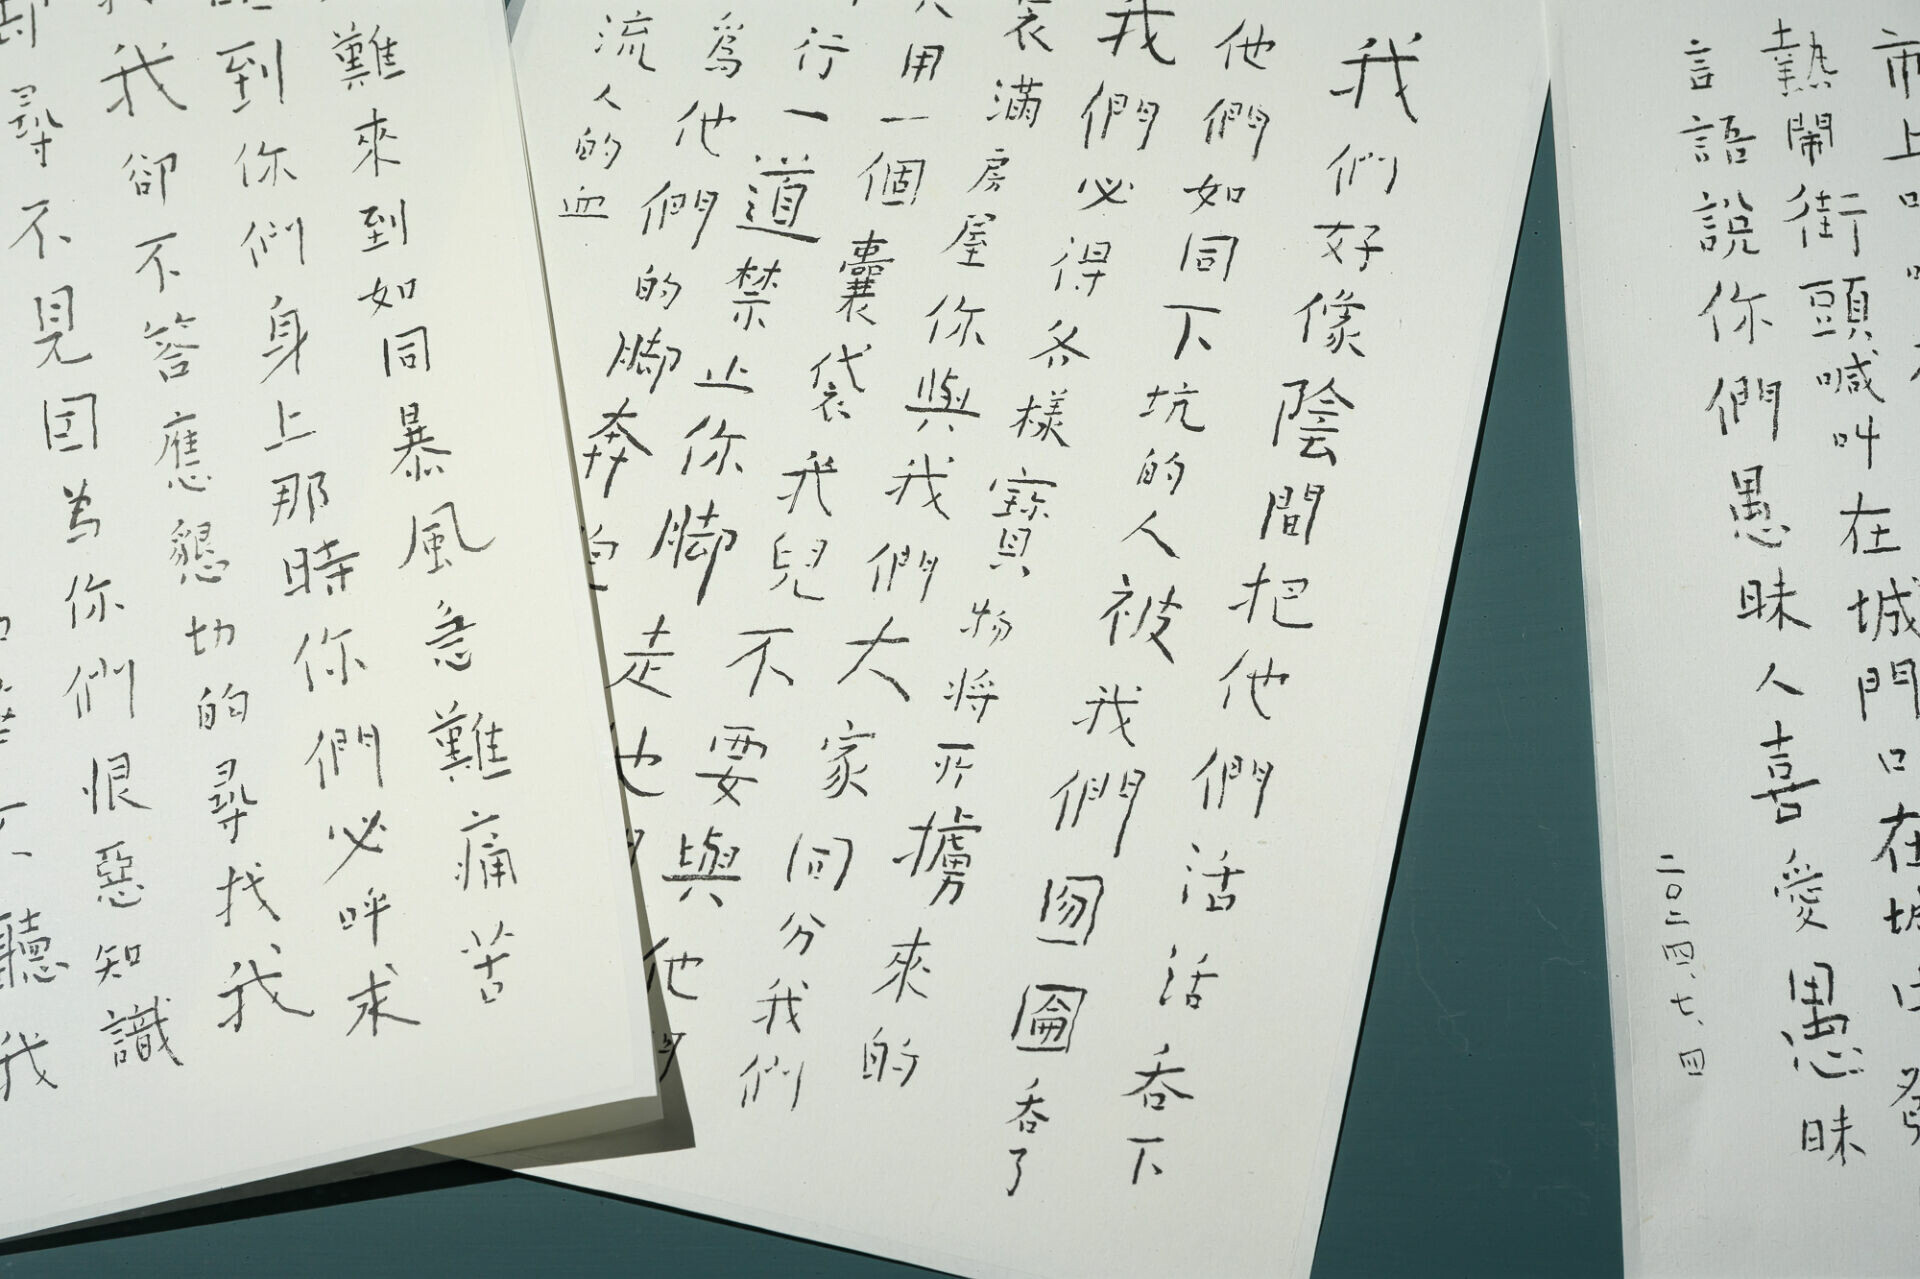 市上
熱鬧街頭喊叫在城門口在城中發
言語說你們愚昧人喜愛愚昧
二〇二四、七、四
我們好像陰間把他們活活吞下
他們如同下坑的人被我們囫圇吞了
我們必得各樣寶物將所擄來的
裝滿房屋你與我們大家同分我們
用一個囊袋我兒不要與他
行一道禁止你脚走
爲他們的脚奔
流人的血
難來到如同暴風急難痛苦
到你們身上那時你們必呼求
我卻不答應懇切的尋找我
卻尋不見因為你們恨惡知識
聽我